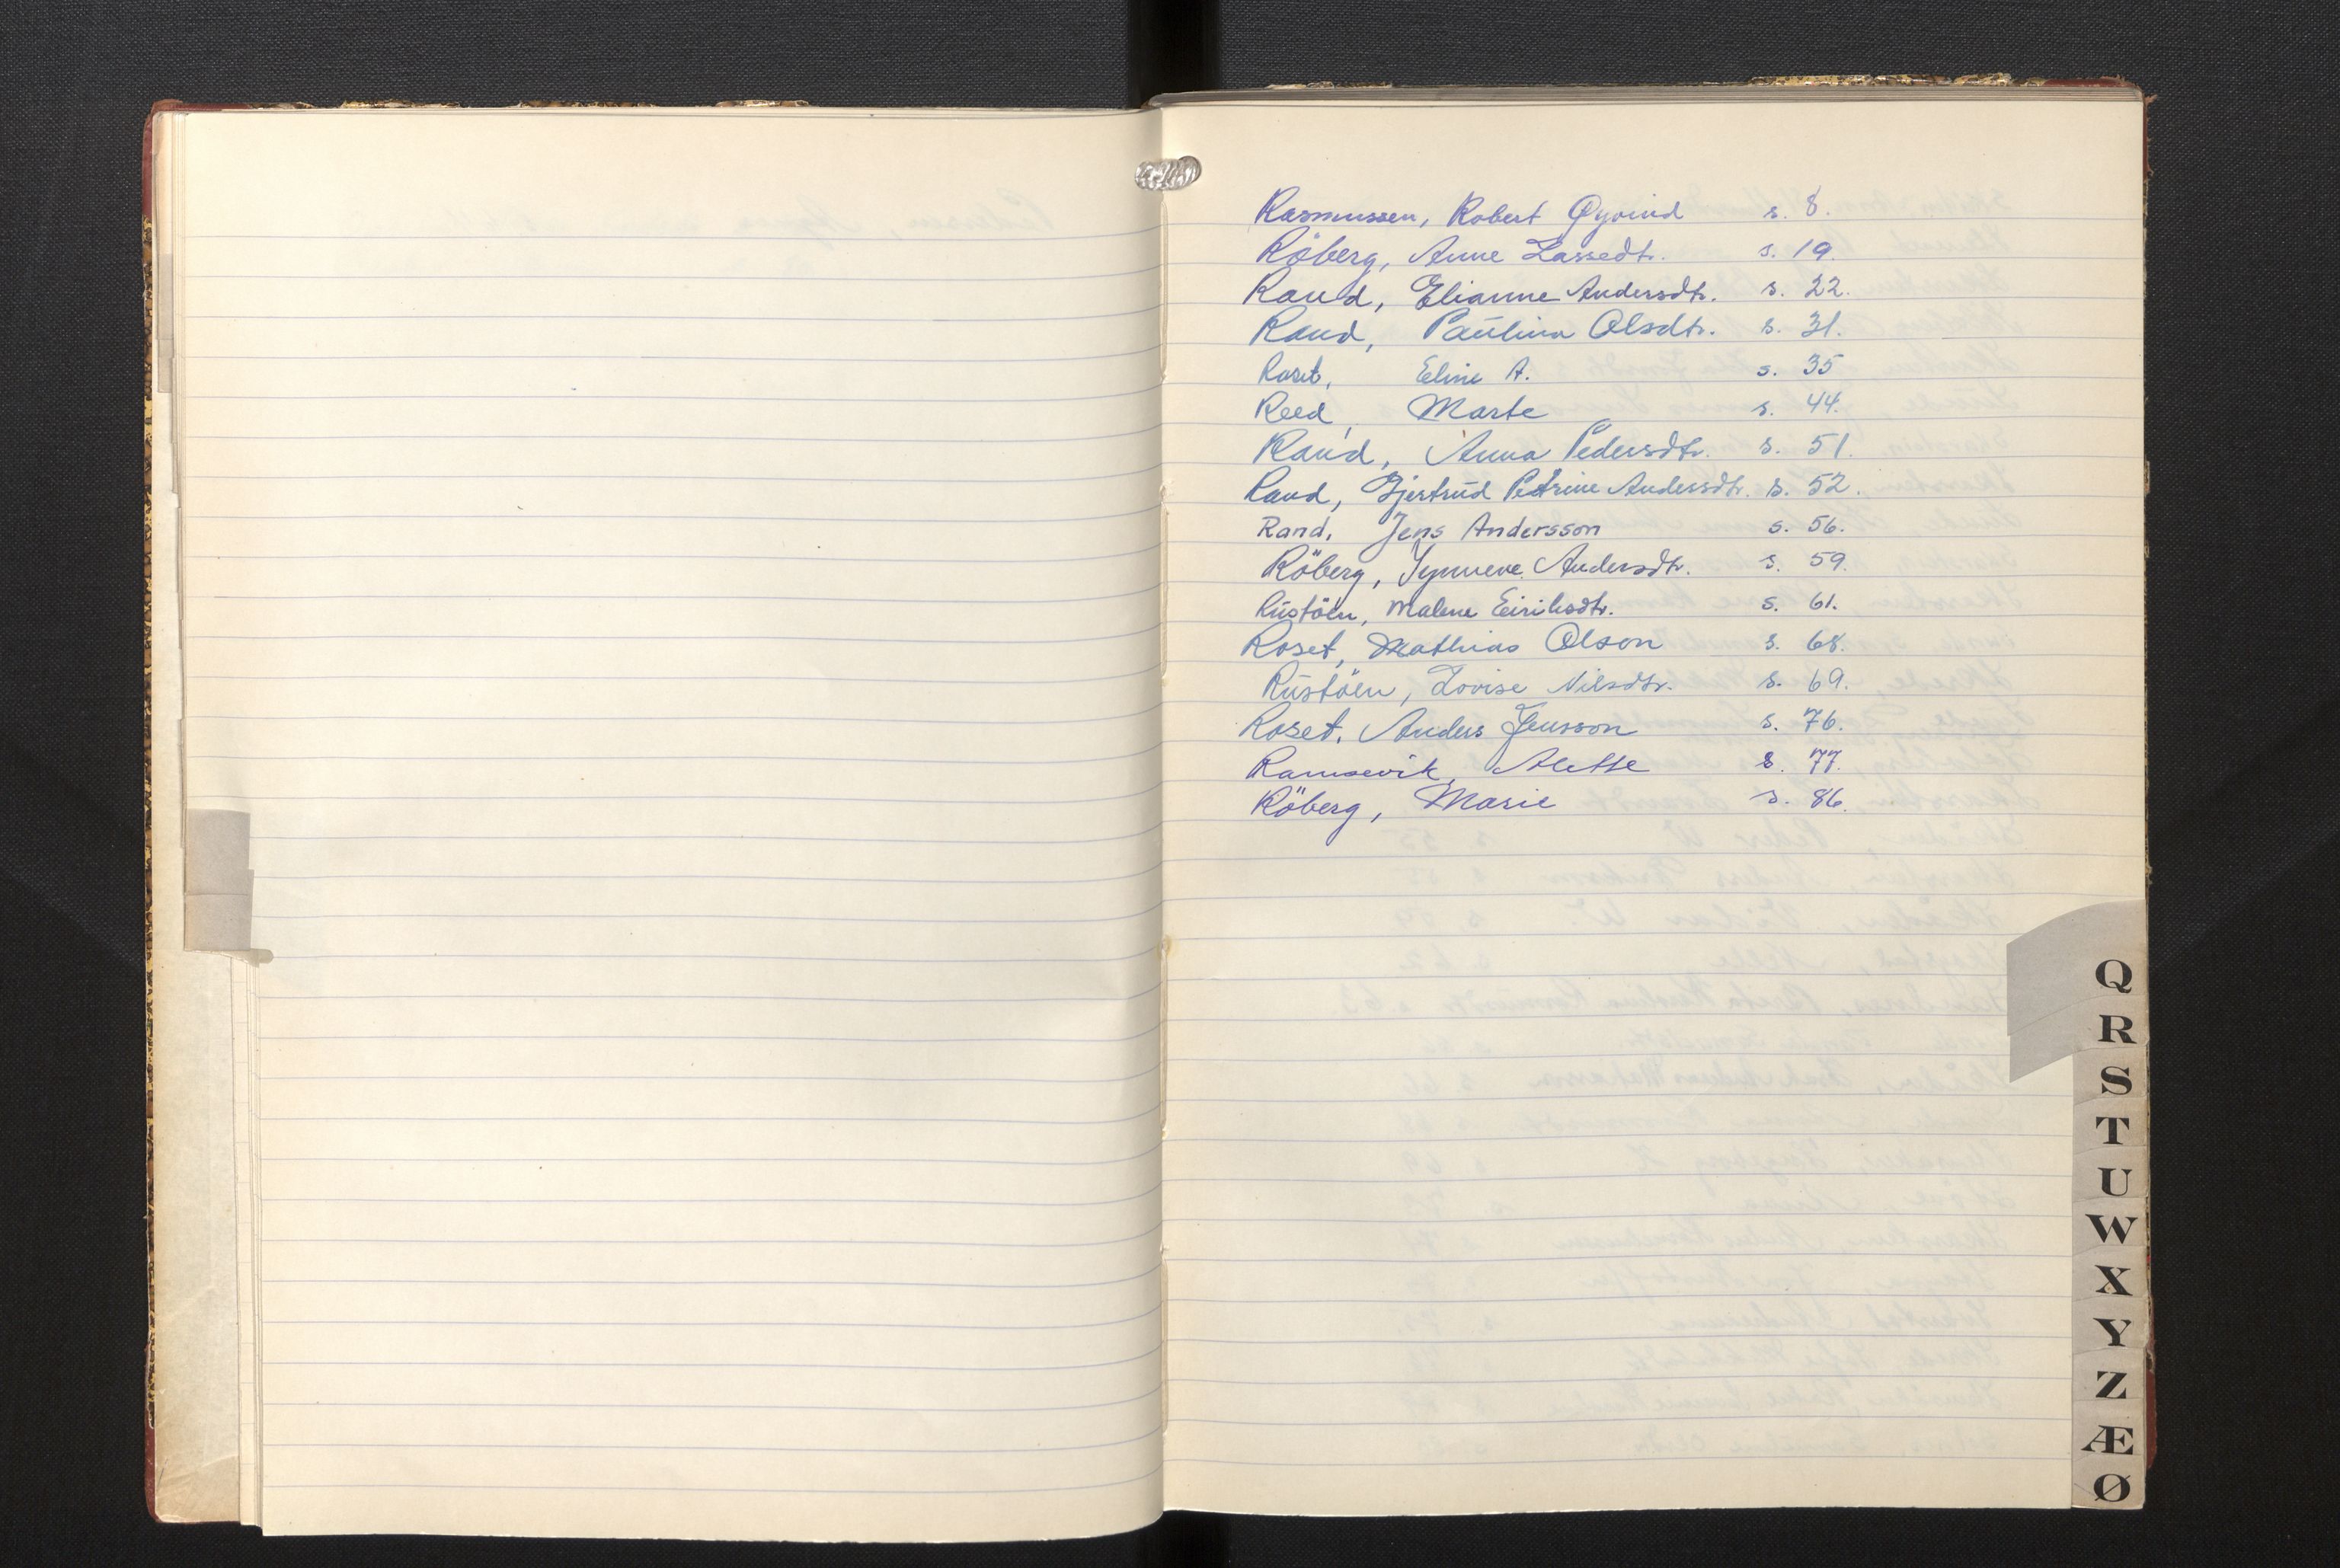 Rasmussen, Robert Øyvind s. 8.
Röberg, Anne Lassedtr. s. 19.
Rand, Elianne Andersdtr. s. 22.
Rand, Paulina Olsdtr. s. 31.
Roset, Eline A. s. 35
Reed, Marte s. 44.
Rand, Anna Pedersdtr. s. 51.
Rand, Gjertrud Petrine Andersdtr. s. 52.
Rand, Jens Andersson s. 56.
Röberg, Synneve Andersdtr. s. 59.
Rustöen, Malene Eiriksdtr. s. 61.
Roset, Mathias Olson s. 68.
Rustöen, Lovise Nilsdtr. s. 69.
Roset, Anders Jensson s. 76.
Ramsevik, Alette s. 77.
Röberg, Marie s. 86.
Q
R
S
T
U
W
X
Y
Z
Æ
Ø